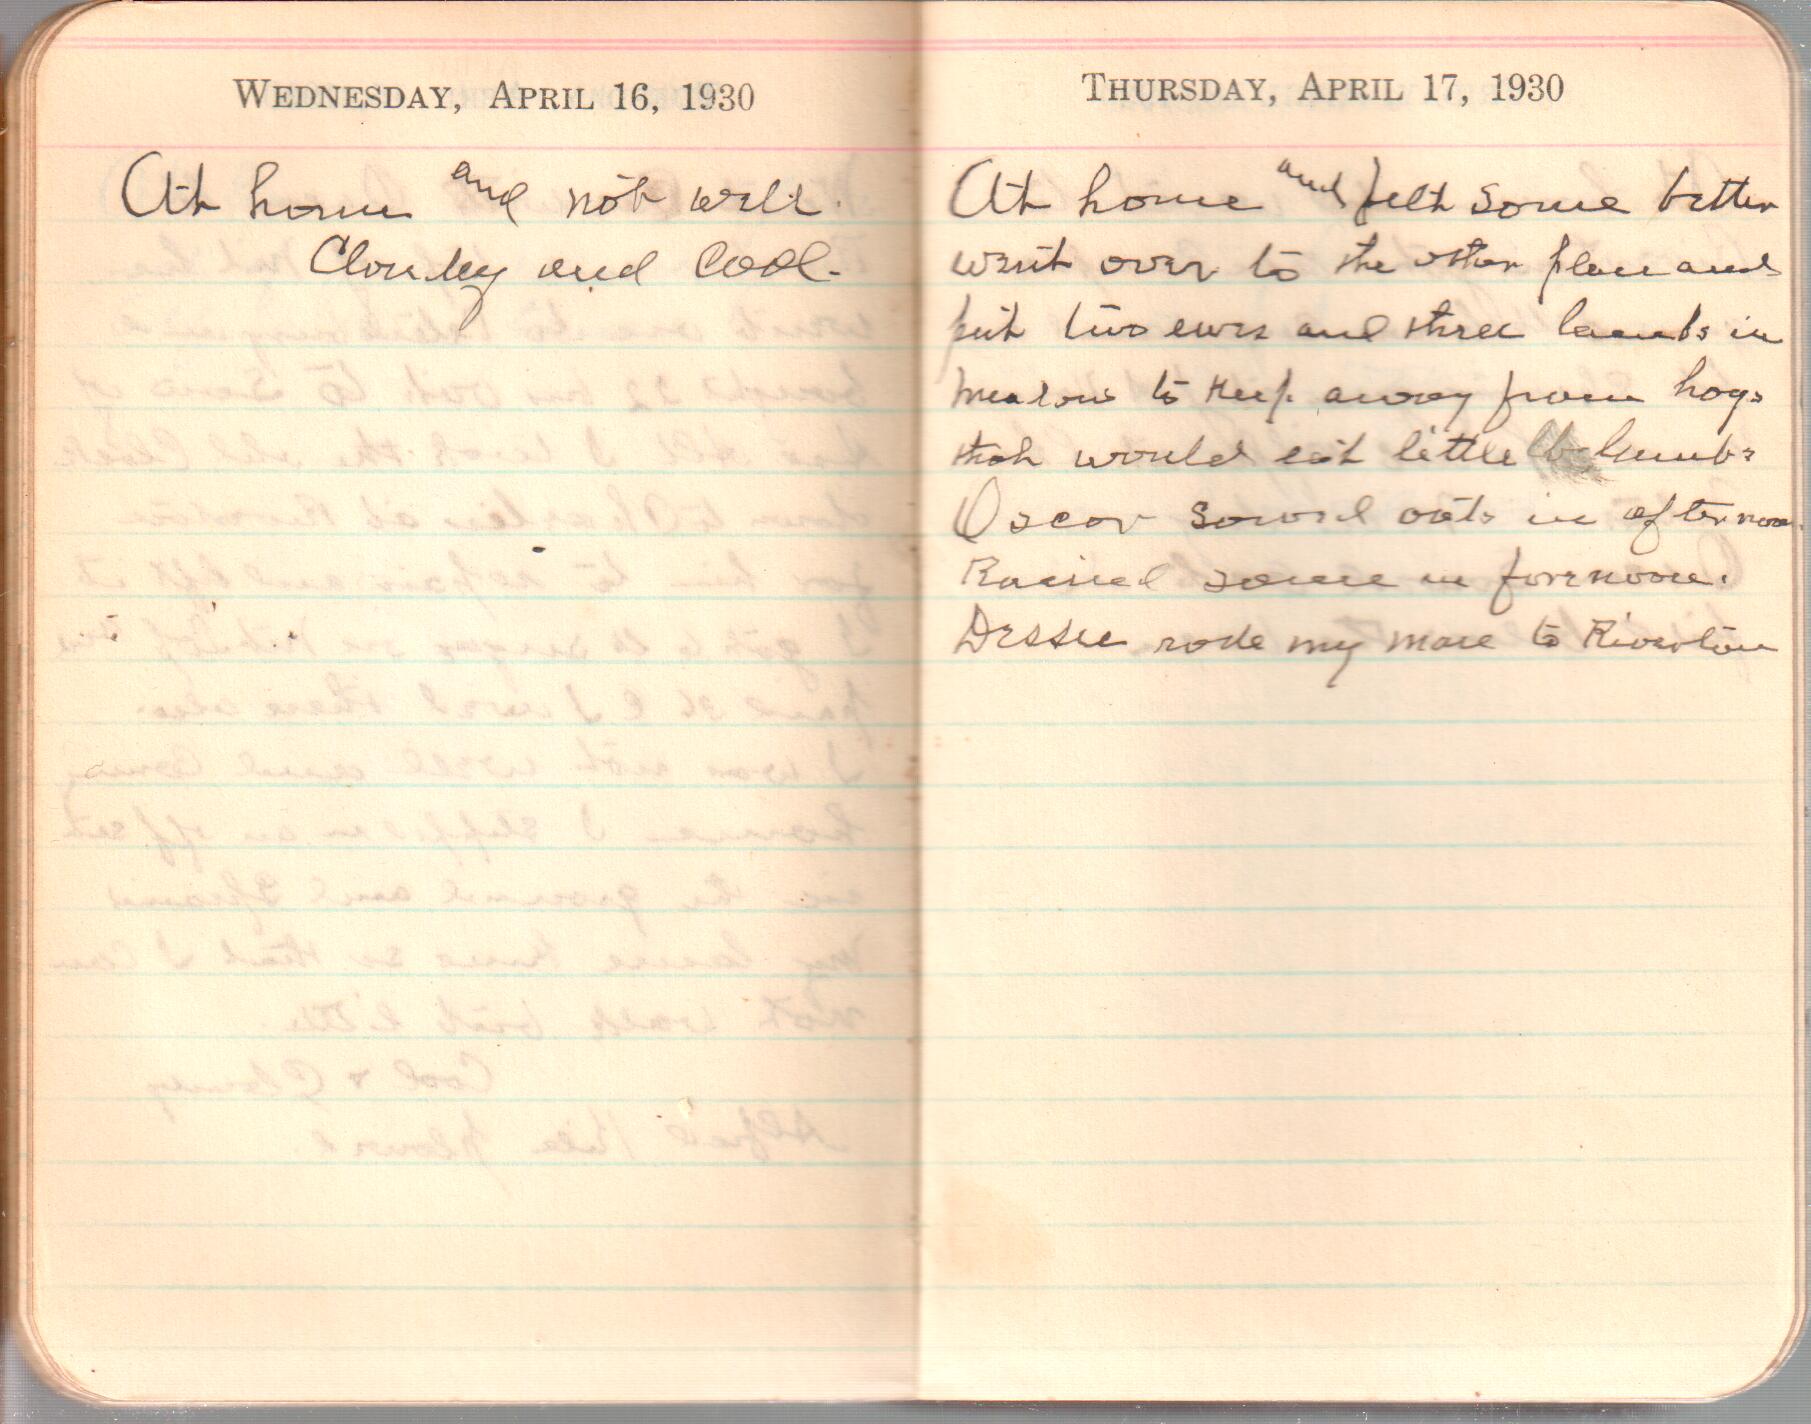 WEDNESDAY, APRIL 16, 1930
At home and not well.
Cloudy and Cool.
THURSDAY, APRIL 17, 1930
At home and felt some better
went over to the other place and
put two ewes and three lambs in
meadow to keep away from hogs
that would eat little lambs
Oscar sowed oats in afternoon
Rained some in forenoon.
Dessie rode my mare to Riverton